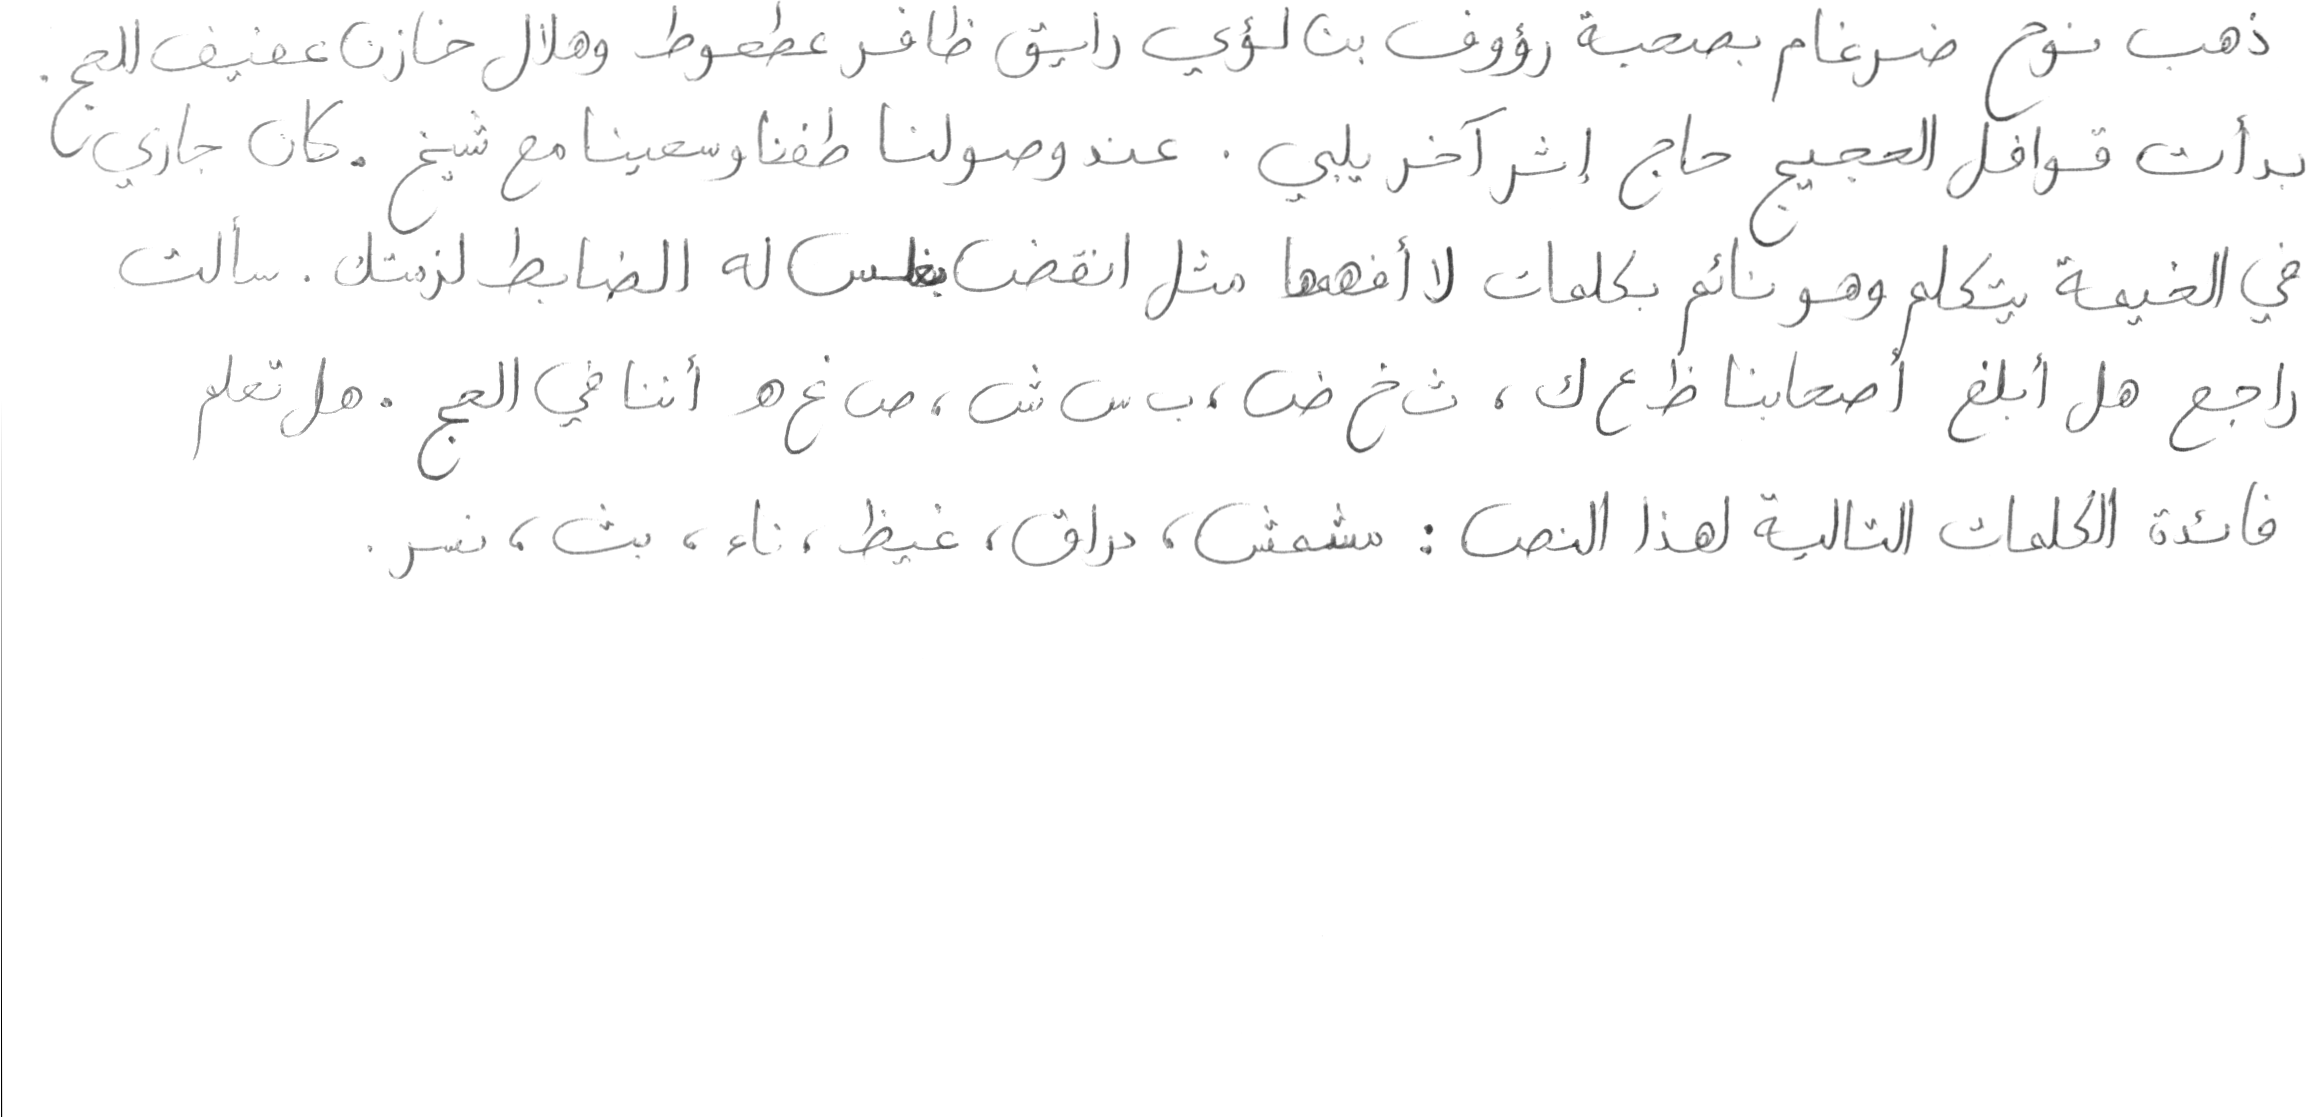 ذهب نوح ضرغام بصحبة رؤوف بن لؤي رايق ظافر عطعوط وهلال خازن عفيف للحج.
بدأت قوافل الحجيج حاج إثر آخر يلبي. عند وصولنا طفنا وسعينا مع شيخ. كان جاري
في الخيمة يتكلم وهو نائم بكلمات لا أفهمها مثل انقض بغلس له الضابط لزمتك. سألت
راجع هل أبلغ أصحابنا ظ ع ك، ث خ ض، ب س ش، ص غ ه أننا في الحج. هل تعلم
فائدة الكلمات التالية لهذا النص: مشمش، دراق، غيظ، ناء، بث، نسر.